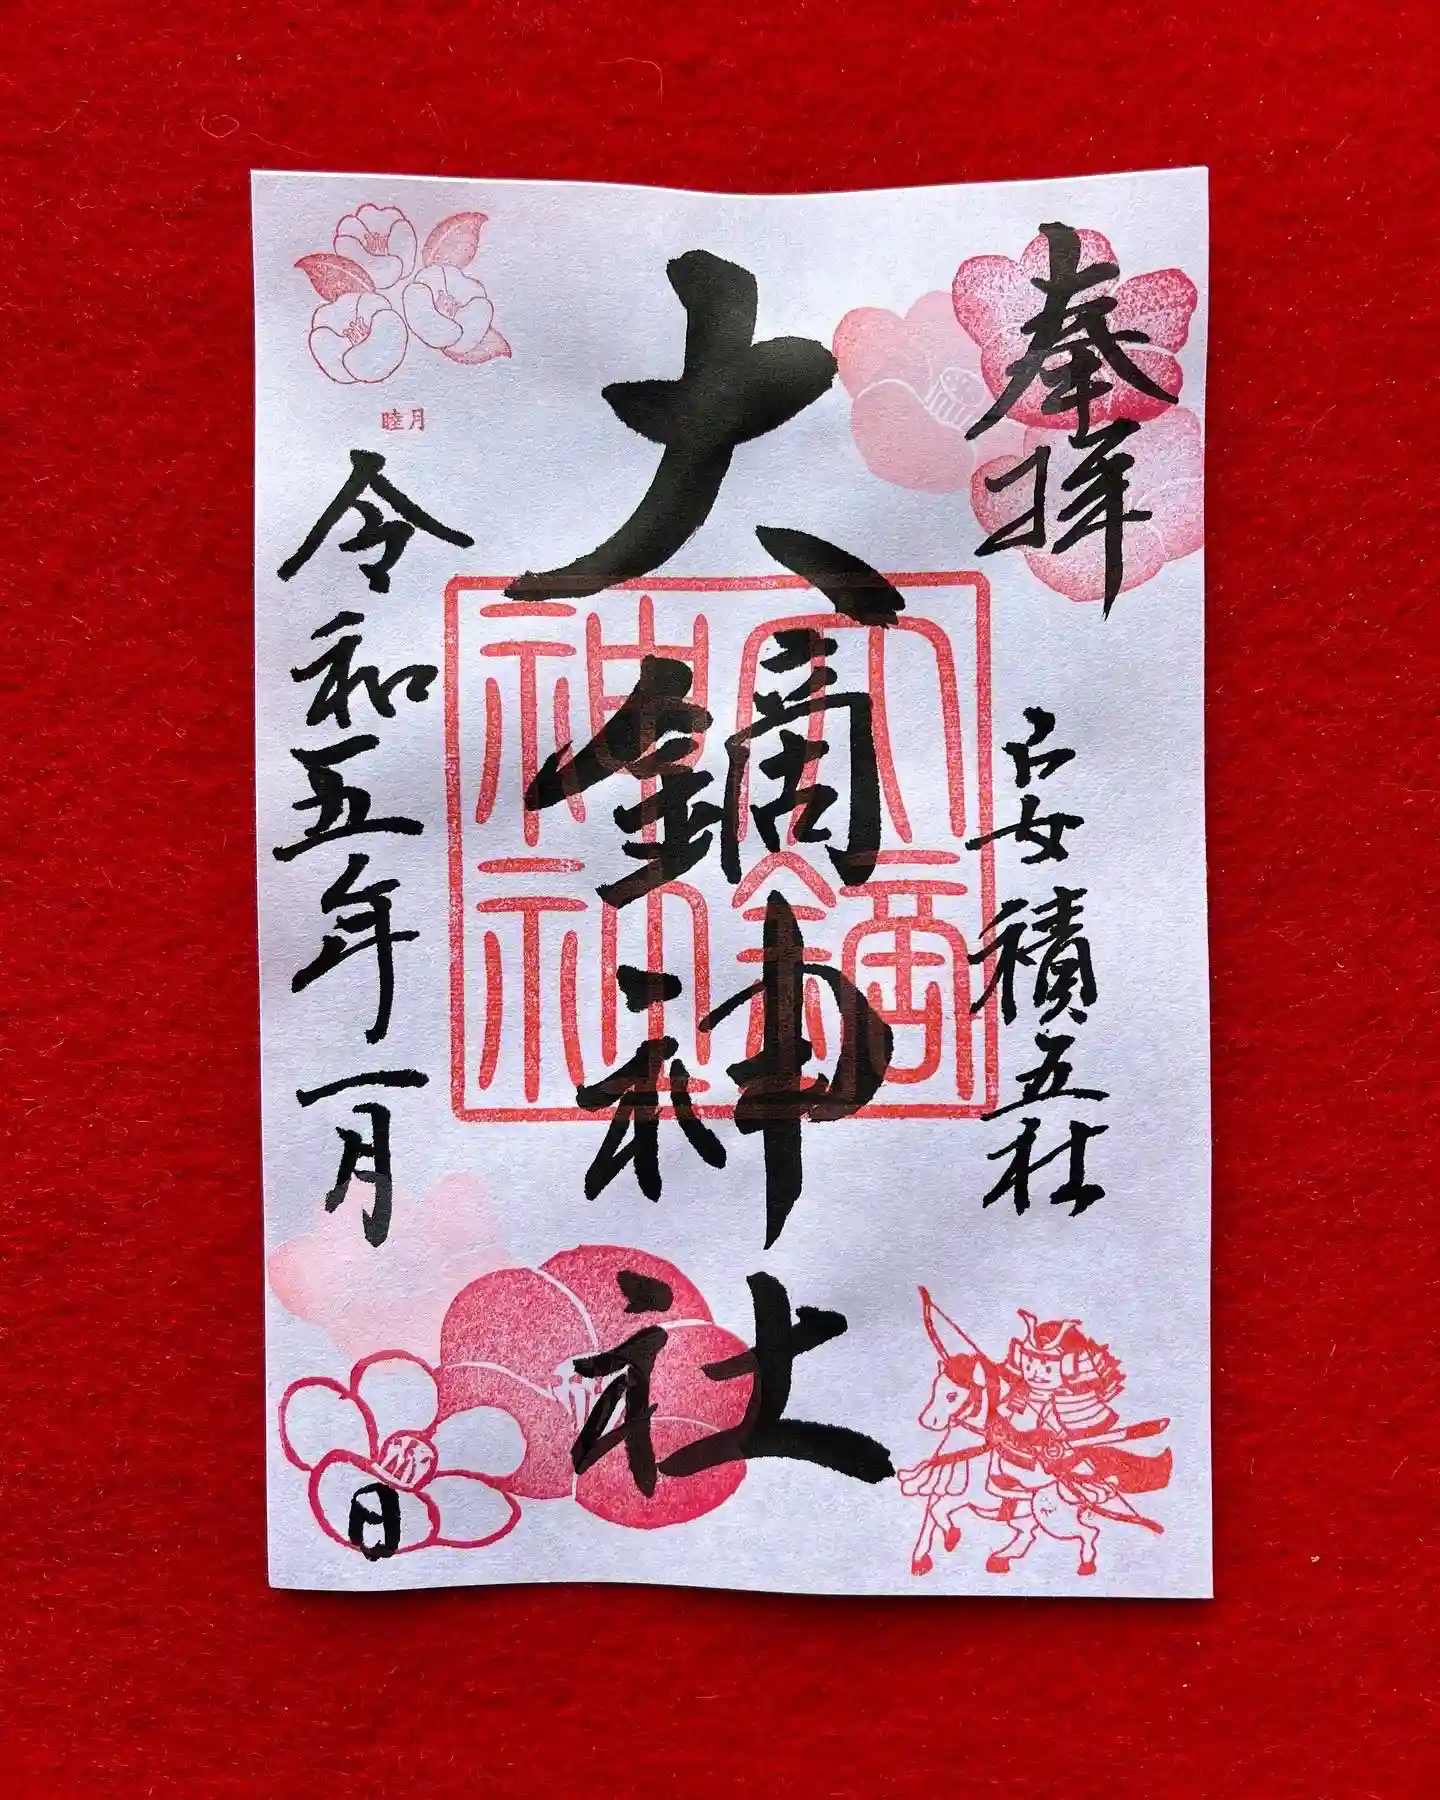 奉拝
安積五社
大鏑神社
大鏑
神社
睦月
令和五年一月
日